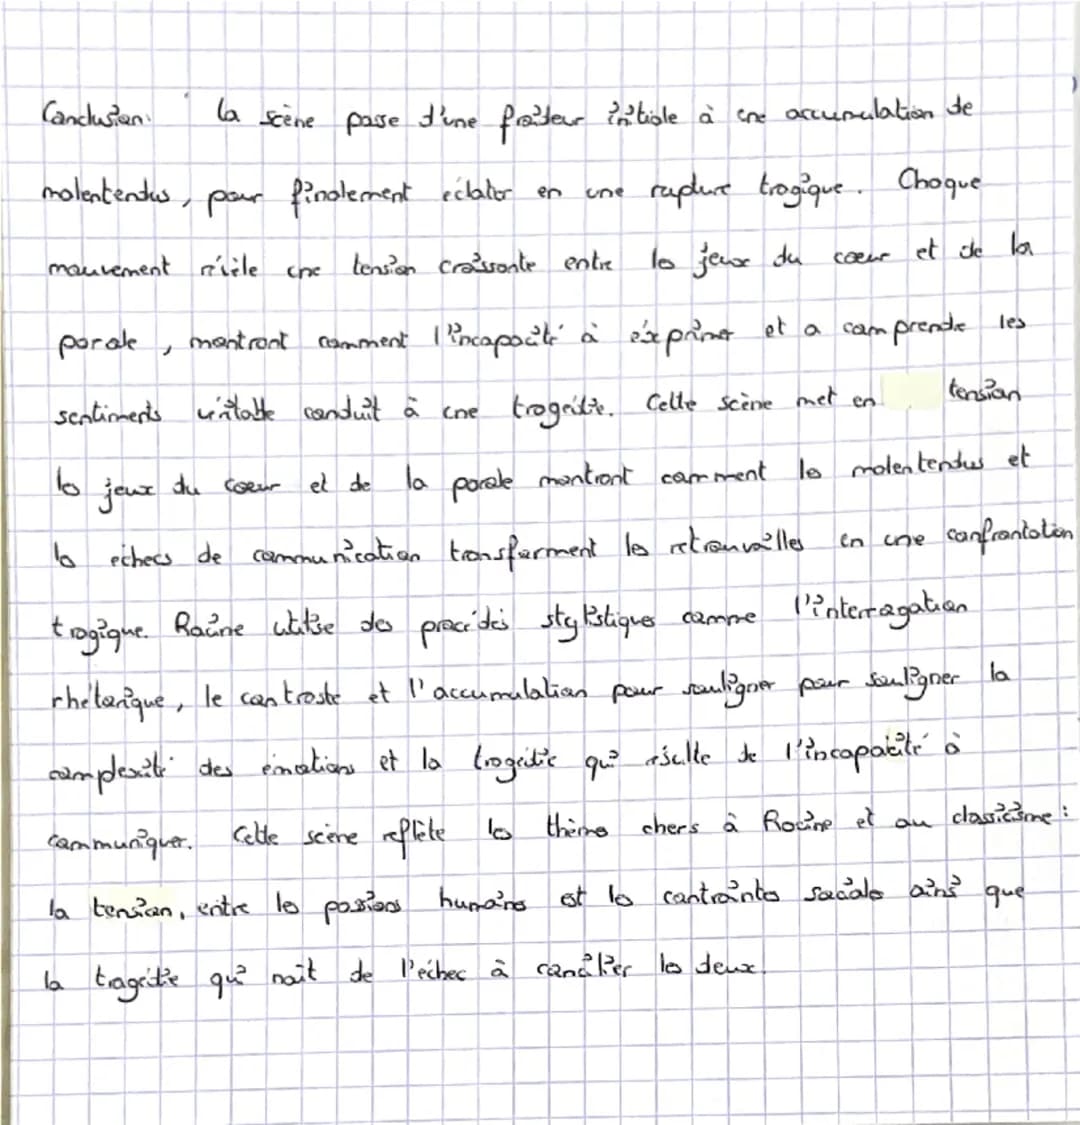 Conclusion: la scène passe d'une froideur initiale à une accumulation de
malentendus, pour finalement éclater en une rupture tragique. Chaque
mouvement révèle une tension croissante entre les jeux du cœur et de la
parole, montrant comment l'incapacité à éxprimer et a comprendre les
sentiments véritable conduit à une tragédie. Cette scène met en tension
les jeux du coeur et de la parole montrant comment les malentendus et
les échecs de communication transforment les retrouvailles en une confrontation
tragique. Racine utilise des procédés stylistiques comme l'interrogation
rhétorique, le contraste et l'accumulation pour souligner pour souligner la
complexité des émotions et la tragédie qui résulte de l'incapacité à
communiquer. Cette scène reflète les thèmes chers à Racine et au classicisme :
la tension, entre les passions humains et les contraintes sociales ainsi que
la tragédie qui naît de l'échec à concilier les deux.